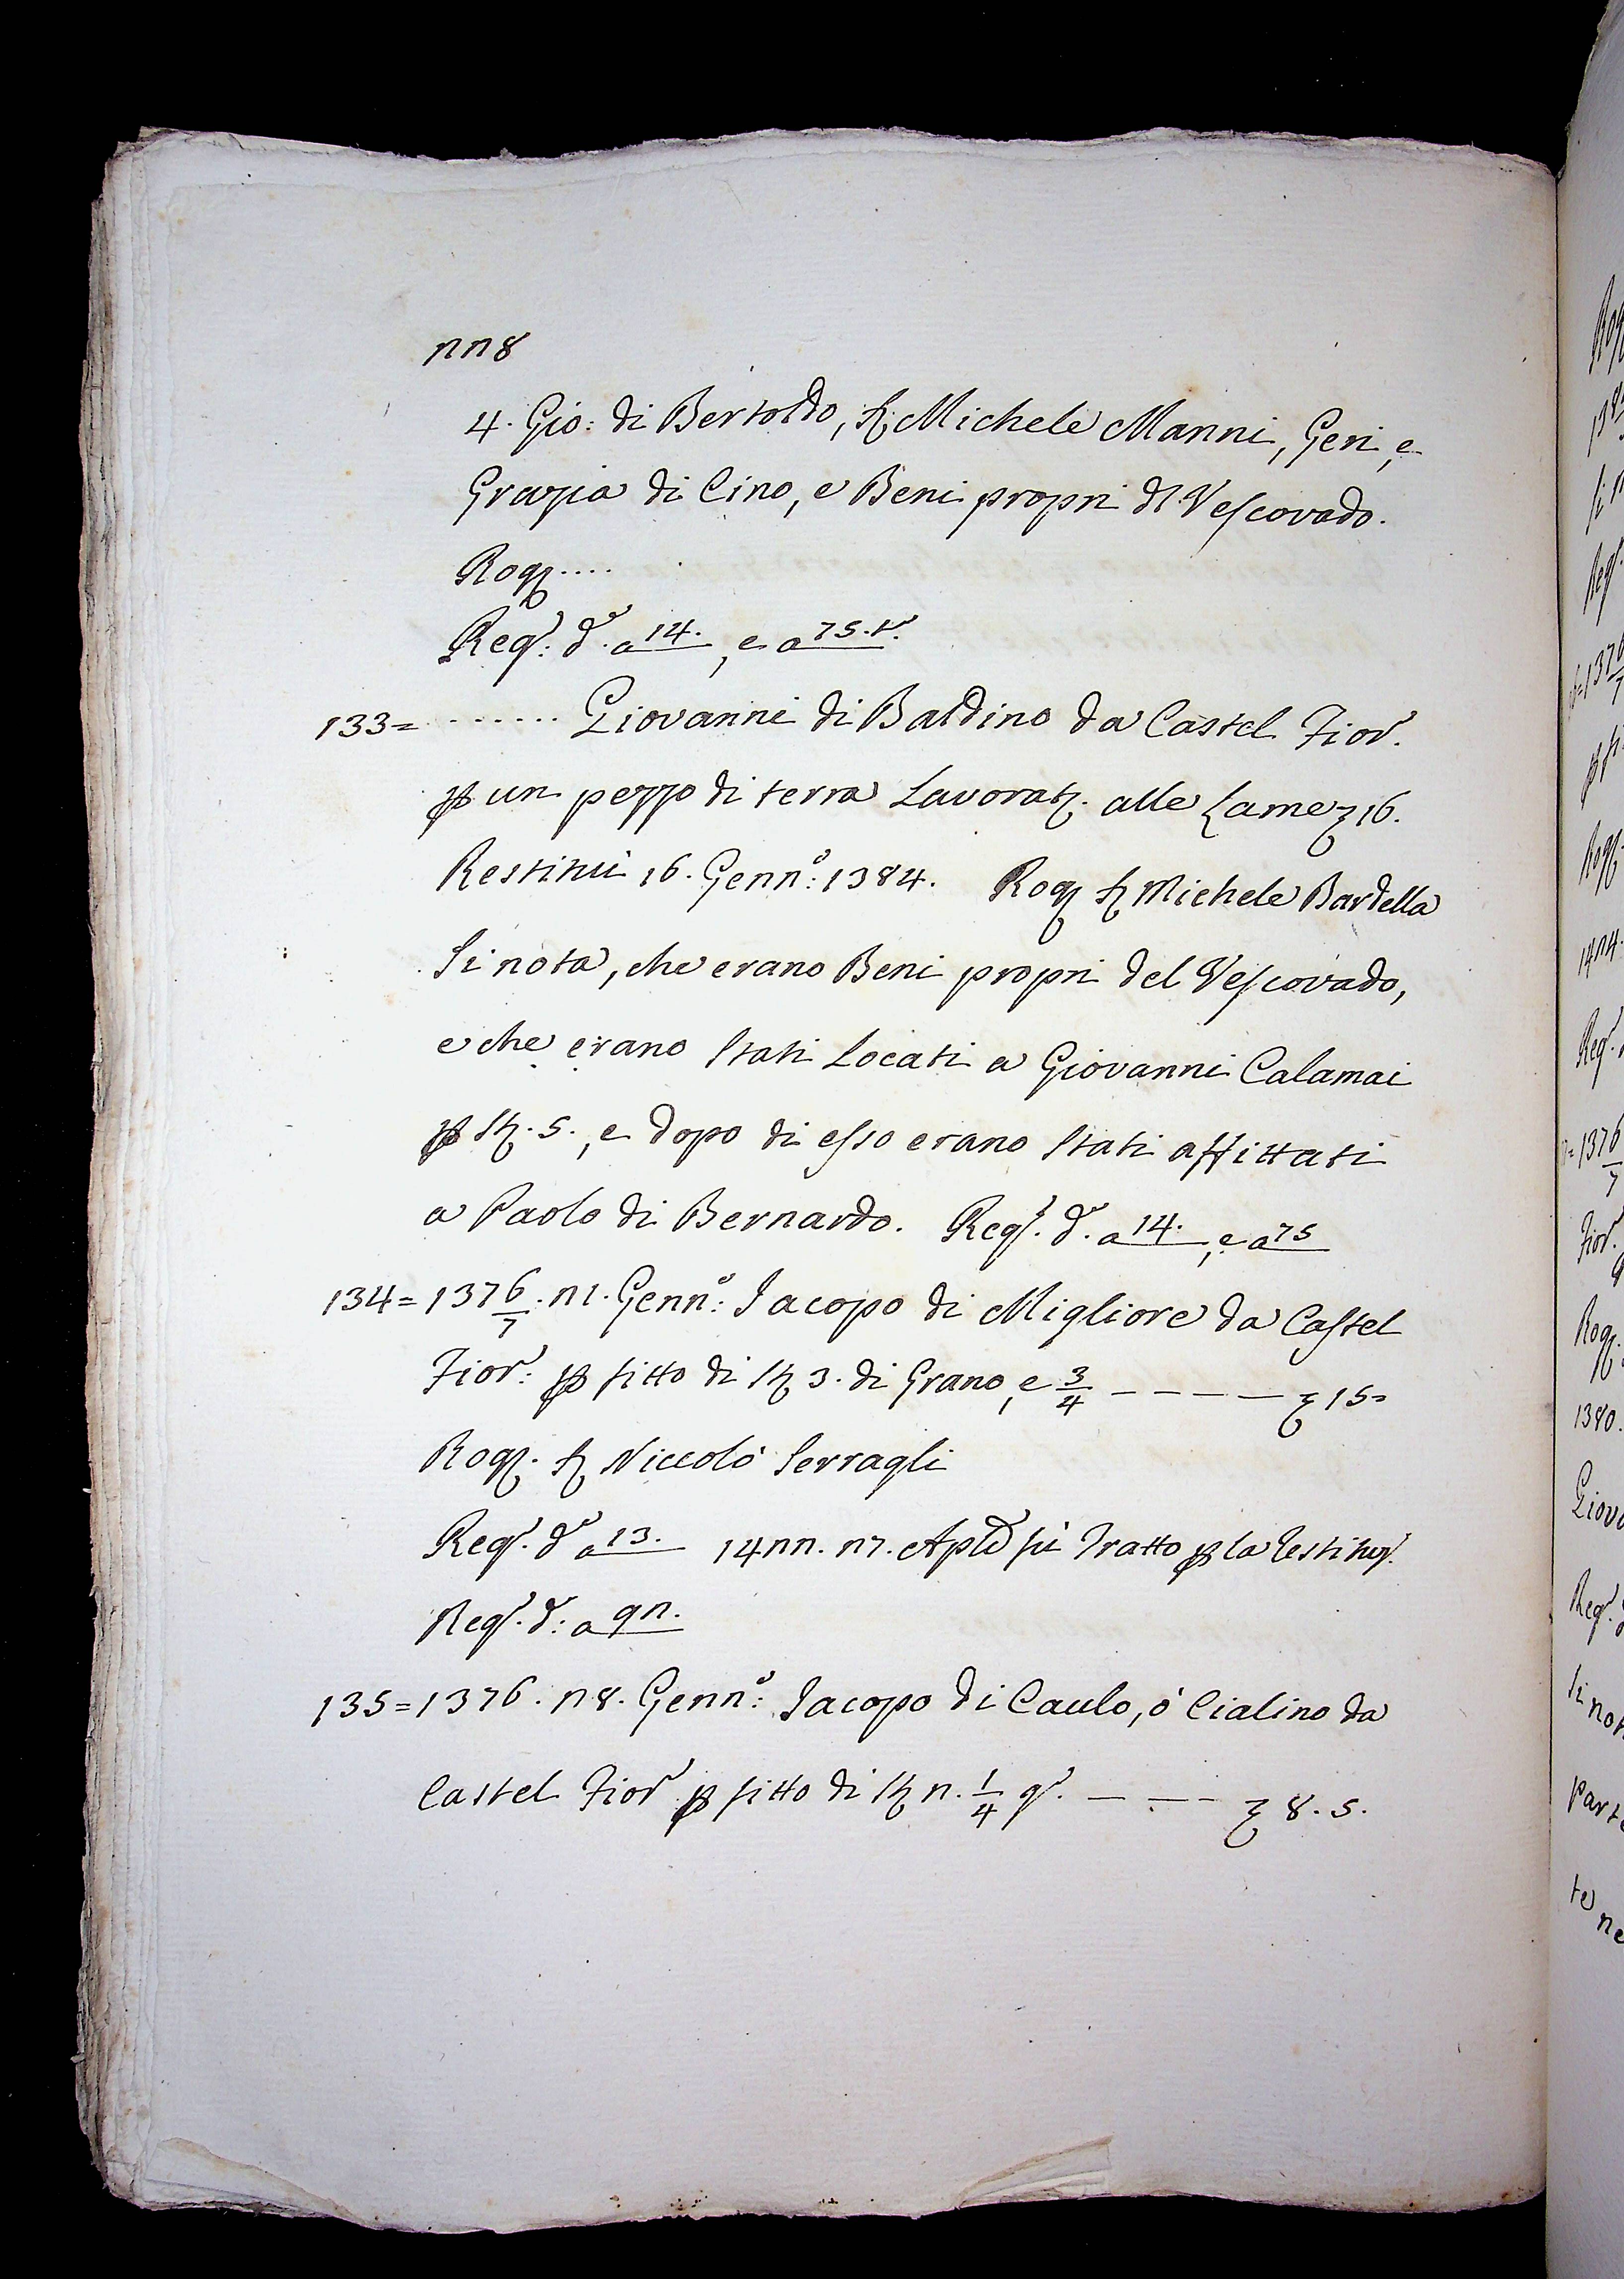 228
4. Gio: di Bertoldo, S. Michele Manni, Geri, e
Grazia di Cino, e Beni propri dl Vescovado.
Rog. ....
Regr: do. a 14., e a 75. vo.
133= ....... Giovanni di Baldino da Castel Fior.
p un pezzo di terra Lavorat. alle Lame £ 16.
Restituì 16. Genno: 1384. Rog. S. Michele Bardella
Si nota, che erano Beni propri del Vescovado,
e che erano Stati Locati a Giovanni Calamai
p St. 5., e dopo di esso erano Stati affittati
a Paolo di Bernardo. Regr. do. a 14., e a 75
134= 1376/7. 21. Genno: Jacopo di Migliore da Castel
Fior: p fitto di St. 3. di Grano, e 3/4 - - - - - £ 15=
Rog. S. Niccolò Serragli
Regr. do a 13. 1422. 27. Aple fù Tratto p la restituz.
Regr. d: a 92.
135= 1376. 28. Genno: Jacopo di Caulo, ò Cialino da
Castel Fior p fitto di St. 2. 1/4 gr. - - - £ 8. 5.